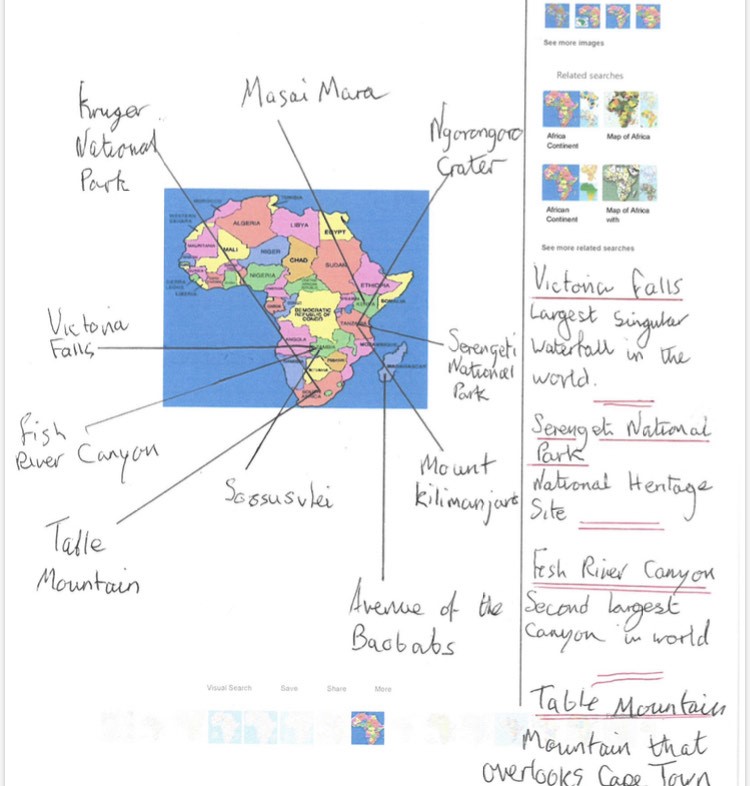 See more images
Related searches
Africa Continent
Map of Africa
African Continent
Map of Africa with
See more related searches
Masai Mara
Kruger
National
Park
Ngorongoro
Crater
TUNISIA
MOROCCO
ALGERIA
LIBYA
EGYPT
WESTERN SAHARA
MAURITANIA
MALI
NIGER
CHAD
SUDAN
NIGERIA
ETHIOPIA
SOMALIA
SIERRA LEONE
LIBERIA
KENYA
DEMOCRATIC REPUBLIC OF CONGO
TANZANIA
ANGOLA
MADAGASCAR
Victoria
Falls
Serengeti
National
Park
Fish
River Canyon
Sossusvlei
Mount
Kilimanjaro
Table
Mountain
Avenue of the
Baobabs
Victoria Falls
Largest Singular
Waterfall in the
world.
Serengeti National
Park
National Heritage
Site
Fish River Canyon
Second largest
Canyon in world
Table Mountain
Mountain that
overlooks Cape Town
Visual Search
Save
Share
More